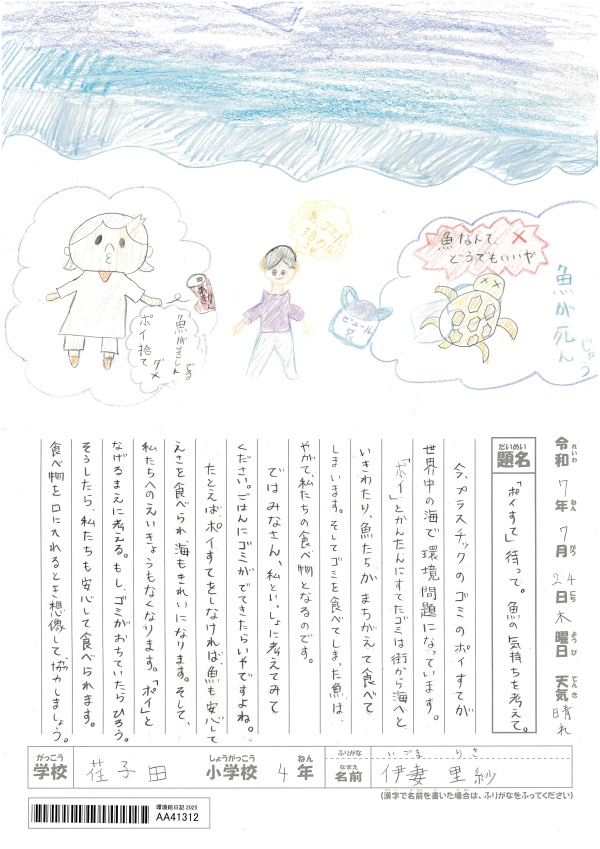 あ、ゴミが
魚なんて、
どうでもいいや
魚が死ん
じゃう
魚がきしん
ポイ捨て
ダメ
ビニール
令和7年7月24日木曜日 天気 晴れ
れいわ ねん がつ にち ようび てんき
だいめい
題名
「ポイすて」待って。魚の気持ちを考えて。
今、プラスチックのゴミのポイすてが
世界中の海で環境問題になっています。
「ポイ」とかんたんにすてたゴミは街から海へと
いきわたり、魚たちがまちがえて食べて
しまいます。そしてゴミを食べてしまった魚は、
やがて、私たちの食べ物となるのです。
ではみなさん、私といっしょに考えてみて
ください。ごはんにゴミがでてきたらいやですよね。
たとえば、ポイすてをしなければ、魚も安心して
えさを食べられ、海もきれいになります。そして、
私たちへのえいきょうもなくなります。「ポイ」と
なげるまえに考える。もし、ゴミがおちていたらひろう。
そうしたら、私たちも安心して食べられます。
食べ物を口に入れるとき想像して、協力しましょう。
がっこう しょうがっこう ねん
学校 荏子田 小学校 4年
ふりがな いづま りさ
なまえ
名前 伊妻 里紗
(漢字で名前を書いた場合は、ふりがなをふってください)
環境絵日記2025
AA41312